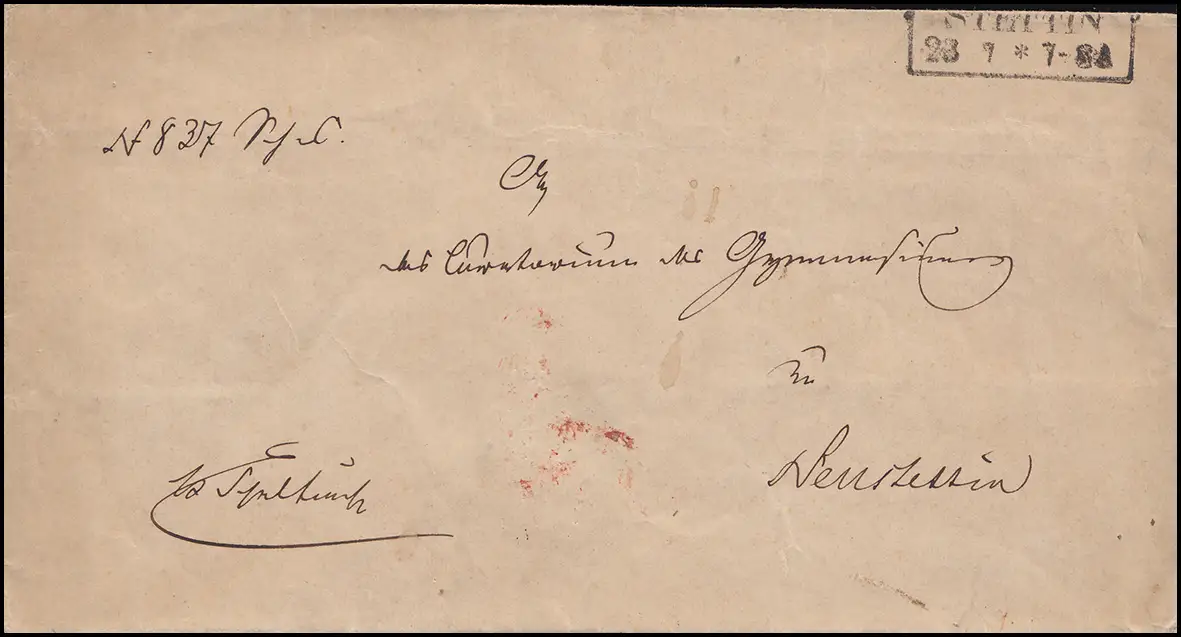 STETTIN
23 7 * 7-8A
N 837 Sch. C.
An
das Curatorium des Gymnasiums
zu
Neustettin